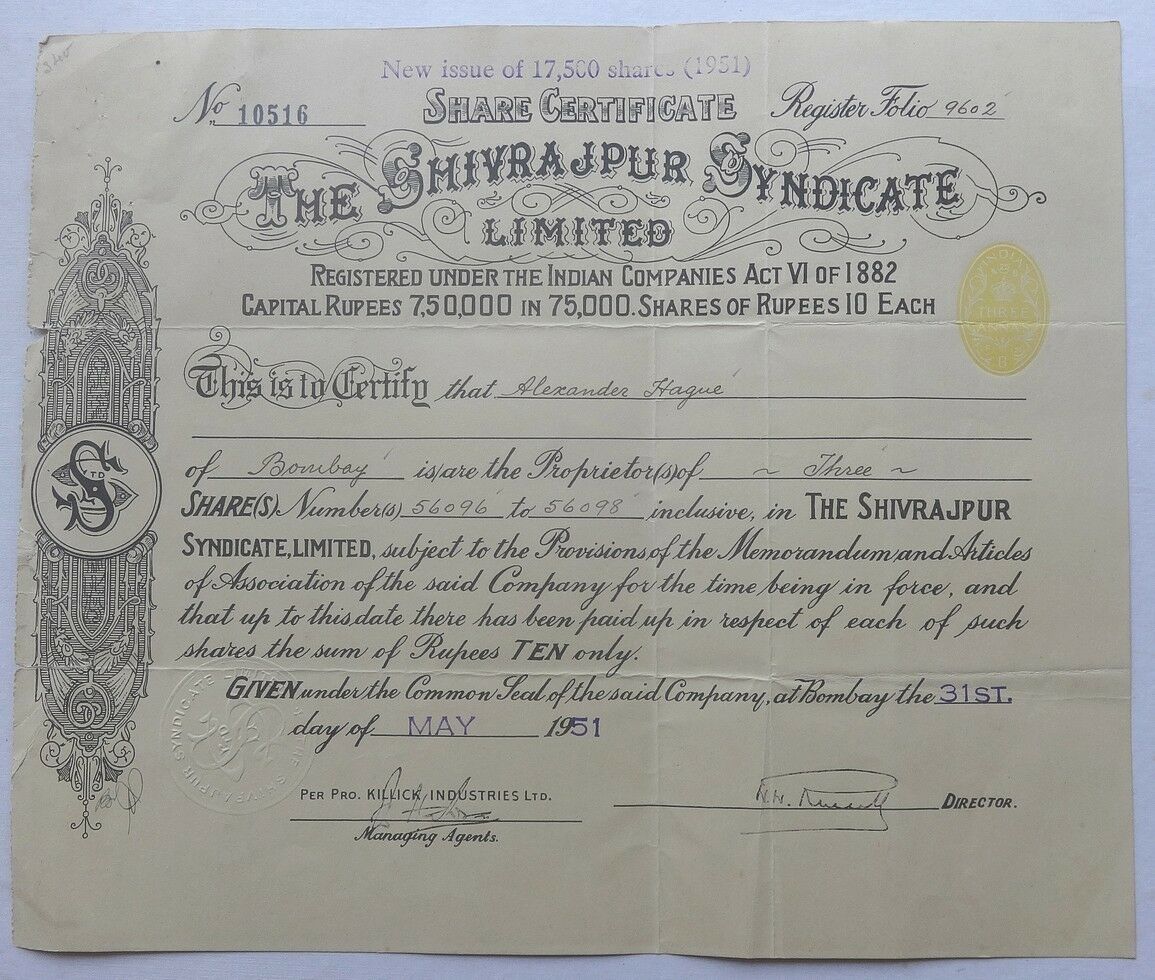 New issue of 17,500 shares (1951)
No 10516 SHARE CERTIFICATE Register Folio 9602
THE SHIVRAJPUR SYNDICATE
LIMITED
REGISTERED UNDER THE INDIAN COMPANIES ACT VI OF 1882
CAPITAL RUPEES 7,50,000 IN 75,000. SHARES OF RUPEES 10 EACH
INDIA
THREE
ANNAS
This is to Certify that Alexander Hague
of Bombay is/are the Proprietor(s) of ~ Three ~
SHARE(S) Number(s) 56096 to 56098 inclusive, in THE SHIVRAJPUR
SYNDICATE, LIMITED, subject to the Provisions of the Memorandum and Articles
of Association of the said Company for the time being in force, and
that up to this date there has been paid up in respect of each of such
shares the sum of Rupees TEN only.
GIVEN under the Common Seal of the said Company, at Bombay the 31ST.
day of MAY 1951
PER PRO. KILLICK INDUSTRIES LTD.
Managing Agents.
DIRECTOR.
S LTD
THE SHIVRAJPUR SYNDICATE